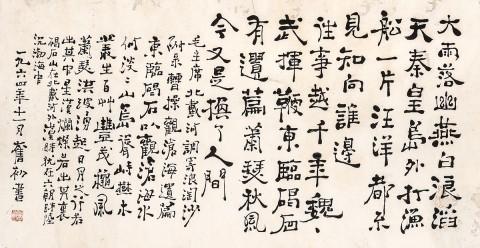 大雨落幽燕白浪滔
天秦皇島外打漁
船一片汪洋都不
見知向誰邊
往事越千年魏
武揮鞭東臨碣石
有遺篇蕭瑟秋風
今又是換了人間
毛主席北戴河調寄浪淘沙
附錄曹操觀滄海遺篇
東臨碣石以觀滄海水
何淡淡山島竦峙樹木
叢生百艸豐茂秋風
蕭瑟洪波湧起日月之行若
出其中星漢燦爛若出其裏
碣石山在北戴河外 在六朝時陸
沉渤海中
一九六四年十一月 書